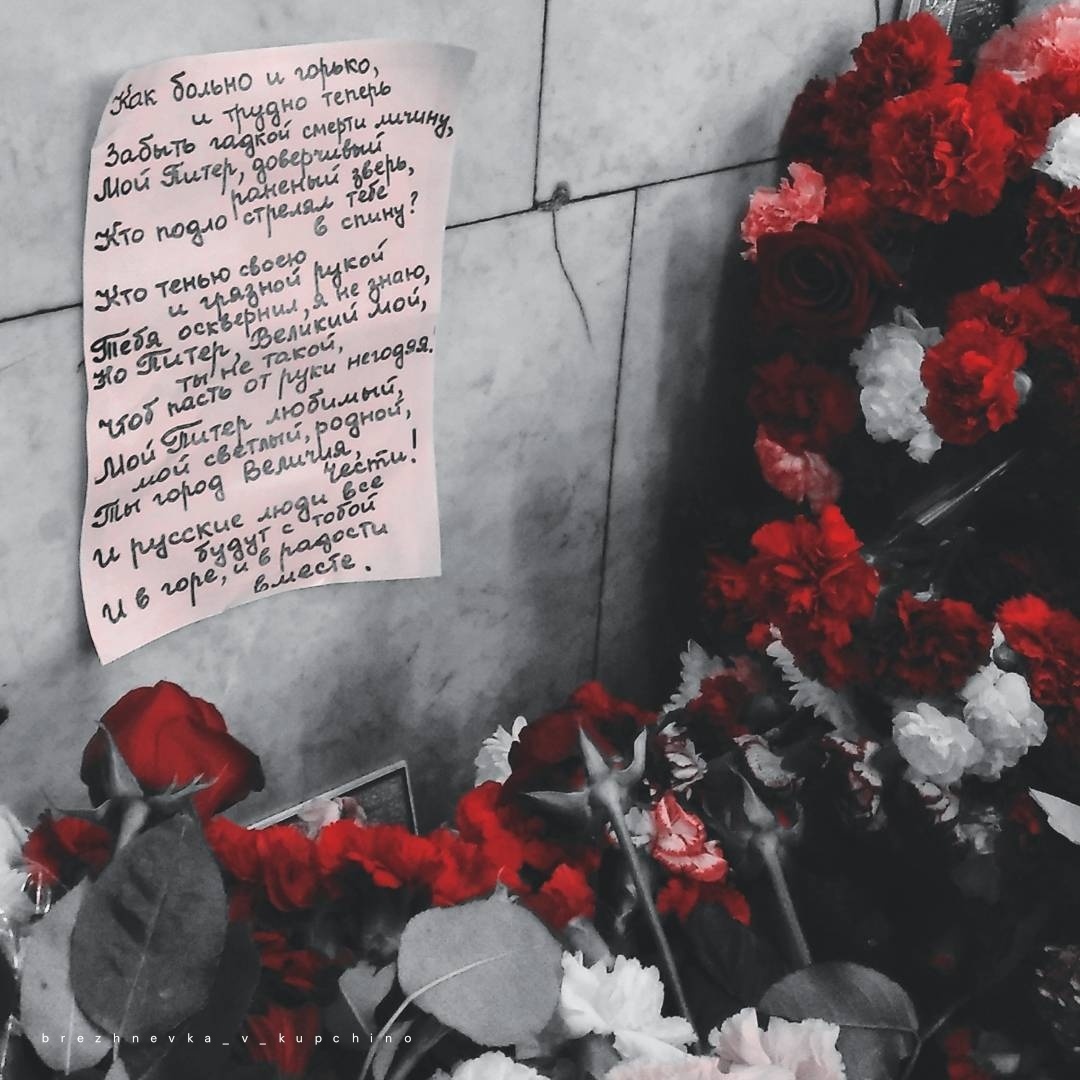 Как больно и горько,
и трудно теперь
Забыть гадкой смерти личину,
Мой Питер, доверчивый
раненый зверь,
Кто подло стрелял тебе
в спину?
Кто тенью своею
и грязной рукой
Тебя осквернил, я не знаю,
Но Питер, Великий мой,
ты не такой,
Чтоб пасть от руки негодяя.
Мой Питер любимый,
мой светлый, родной,
Ты город Величия,
чести!
И русские люди все
будут с тобой
И в горе, и в радости
вместе.
brezhnevka_v_kupchino